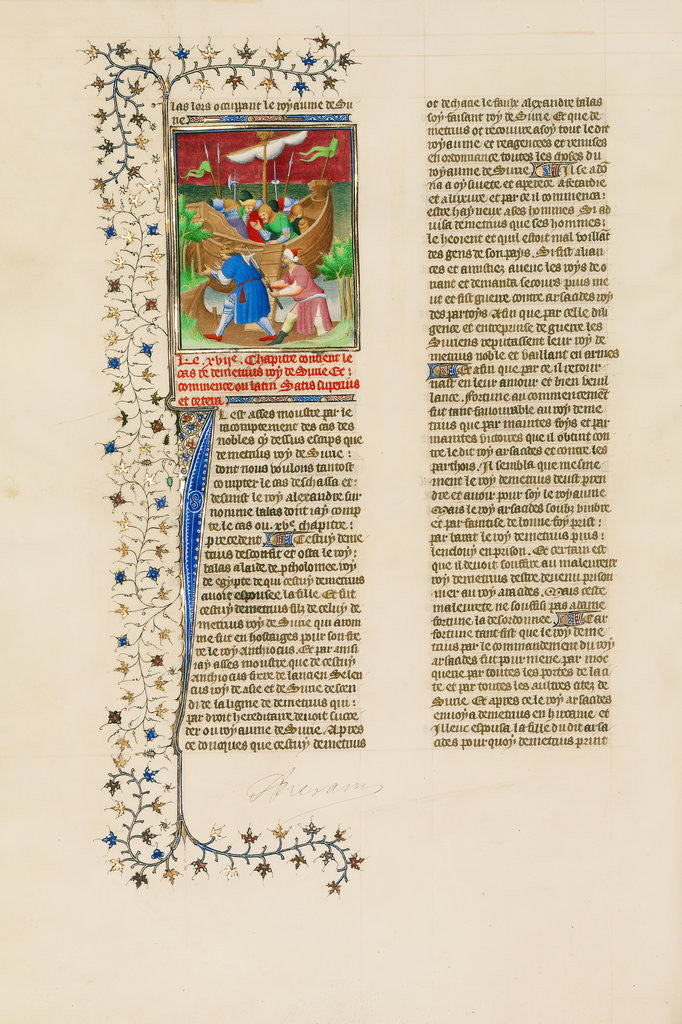 las lors occupant le royaume de Su
rie
Le .xviie. Chapitre contient le
cas de demetrius roy de Surie Et
commence ou latin Satis superius
et cetera
Il est asses monstre par le
racomptement des cas des
nobles cy dessus escrips que
demetrius roy de Surie :
dont nous voulons tantost
compter le cas deschassa et
desmist le roy alexandre sur
nomme balas dont iay comp
te le cas ou .xve. chapitre :
precedent. Cestuy deme
trius desconfit et osta le roy :
balas a laide de ptholomee roy
de egypte de qui cestuy demetrius
auoit espousee la fille Et fut
cestuy demetrius filz de celuy de
metrius roy de Surie qui a rom
me fut en hostaiges pour son fre
re le roy anthiocus. Et par ainsi
iay asses monstre que de cestuy
anthiocus frere de lancien Seleu
cus roy de asie et de Surie descen
di de la ligne de demetrius qui :
par droit hereditaire deuoit succe
der ou royaume de Surie. Apres
ce doncques que cestuy demetrius
ot dechacie le faulx alexandre balas
soy faisant roy de Surie Et que de
metrius ot recouure a soy tout le dit
royaume et reagences et remises
en ordonnance toutes les choses du
royaume de Surie Il se adon
na a oysiuete et a perece a fetardie
et a luxure et par ce il commenca :
estre hayneux a ses hommes. Si ad
uisa demetrius que ses hommes :
le heoient et quil estoit mal voillant
des gens de son pays. Si fist alian
ces et amistiez auec les roys de o
riant et demanda secours puis me
ut et fist guerre contre arsacides roy
des parthoys. Afin que par celle dili
gence et entreprise de guerre les
Suriens reputassent leur roy de
metrius noble et vaillant en armes
Et afin que par ce il retour
nast en leur amour et bien vueil
lance. Fortune au commencement
fut tant fauourable au roy deme
trius que par maintes foys et par
maintes victoires que il obtint con
tre le dit roy arsacides et contre les
parthois. Il sembla que mesme
ment le roy demetrius deust pren
dre et auoir pour soy le royaume
Mais le roy arsacides soubz vmbre
et par faintise de bonne foy prist :
par barat le roy demetrius puis :
lencloy en prison. Et certain est
que il deuoit souffire au maleureux
roy demetrius destre deuenu prison
nier au roy arsacides. Mais ceste
maleurete ne souffisi pas a dame
fortune la desordonnee. Car
fortune tant fist que le roy deme
trius par le commandement du roy
arsacides fut pour mene par moc
querie par toutes les portes de la ci
te et par toutes les aultres citez de
Surie. Et apres ce le roy arsacides
enuoya demetrius en hircanie et
illeuc espousa la fille du dit arsa
cides pour quoy demetrius print